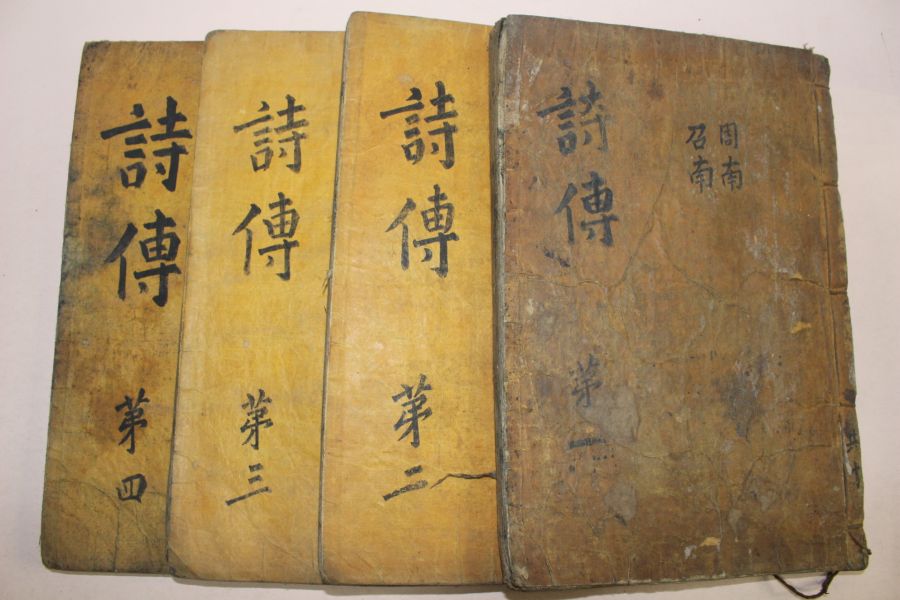 周南
召南
詩傳 苐一
詩傳 苐二
詩傳 苐三
詩傳 苐四